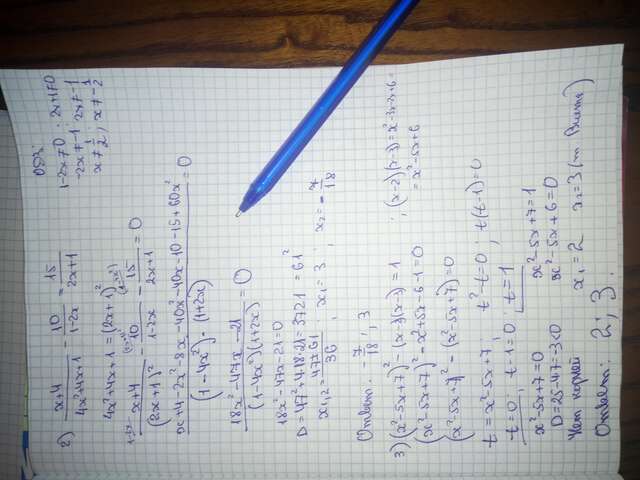 ОДЗ:
1-2x≠0; 2x+1≠0
-2x≠-1 2x≠-1
x≠1/2; x≠-1/2
2) (x+4)/(4x²+4x+1) - 10/(1-2x) = 15/(2x+1)
4x²+4x+1=(2x+1)²
(x+4)/(2x+1)² - 10/(1-2x) - 15/(2x+1) = 0
(x+4-2x²-8x-40x²-40x-10-15+60x²)/((1-4x²)·(1+2x)) = 0
(18x²-47x-21)/((1-4x²)(1+2x)) = 0
18x²-47x-21=0
D=47²+4·18·21=3721=61²
x₁,₂=(47±61)/36, x₁=3, x₂=-7/18
Ответ: -7/18; 3
3) (x²-5x+7)²-(x-2)(x-3)=1; (x-2)(x-3)=x²-3x-2x+6=
=x²-5x+6
(x²-5x+7)²-x²+5x-6-1=0
(x²-5x+7)²-(x²-5x+7)=0
t=x²-5x+7; t²-t=0; t(t-1)=0
t=0; t-1=0; t=1
x²-5x+7=0 x²-5x+7=1
D=25-47-3<0 x²-5x+6=0
Нет корней x₁=2 x₂=3 (т Виета)
Ответ: 2; 3.